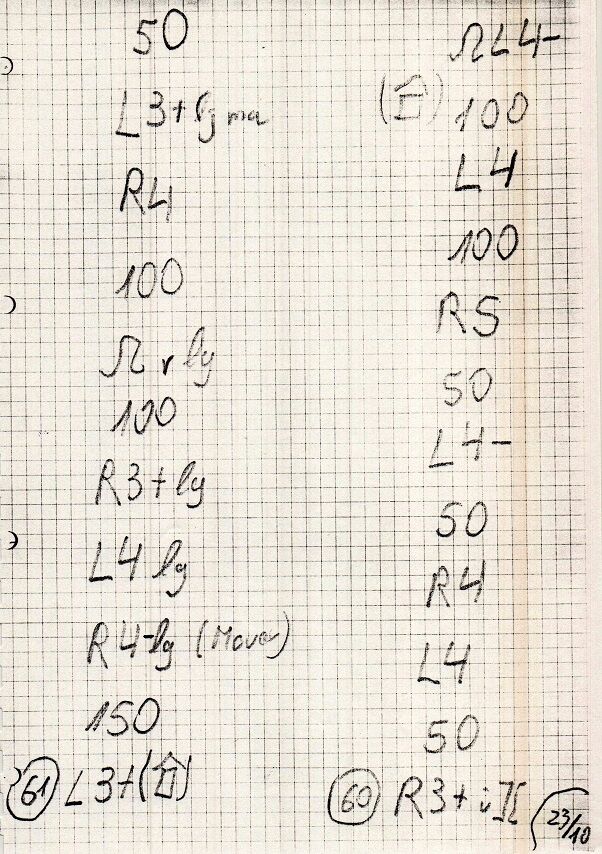 50
L3+ lg ma
R4
100
Ω v lg
100
R3+ lg
L4 lg
R4- lg
150
61 L3+
ΩL4-
100
L4
100
R5
50
L4-
50
R4
L4
50
60 R3+
23/10